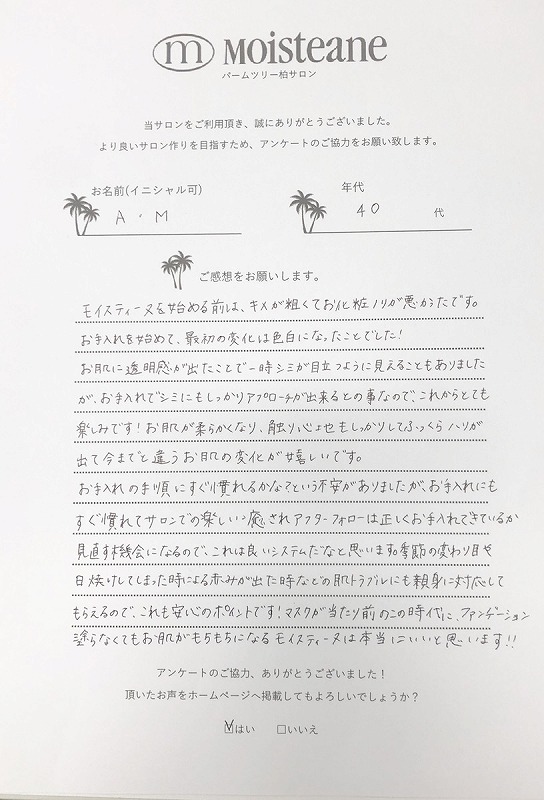 m MOISTEANE
パームツリー柏サロン
当サロンをご利用頂き、誠にありがとうございました。
より良いサロン作りを目指すため、アンケートのご協力をお願い致します。
お名前(イニシャル可)
A・M
年代
40 代
ご感想をお願いします。
モイスティーヌを始める前は、キメが粗くてお化粧ノリが悪かったです。
お手入れを始めて、最初の変化は色白になったことでした!
お肌に透明感が出たことで一時シミが目立つように見えることもありました
が、お手入れでシミにもしっかりアプローチが出来るとの事なので、これからとても
楽しみです!お肌が柔らかくなり、触り心地もしっかりしてふっくらハリが
出て今までと違うお肌の変化が嬉しいです。
お手入れの手順にすぐ慣れるかなぁという不安がありましたが、お手入れにも
すぐ慣れてサロンでの楽しい癒されアフターフォローは正しくお手入れできているか
見直す機会になるので、これは良いシステムだなと思います。季節の変わり目や
日焼けしてしまった時による赤みが出た時などの肌トラブルにも親身に対応して
もらえるので、これも安心のポイントです!マスクが当たり前のこの時代に、ファンデーション
塗らなくてもお肌がもちもちになるモイスティーヌは本当にいいと思います!!
アンケートのご協力、ありがとうございました!
頂いたお声をホームページへ掲載してもよろしいでしょうか?
☑はい □いいえ